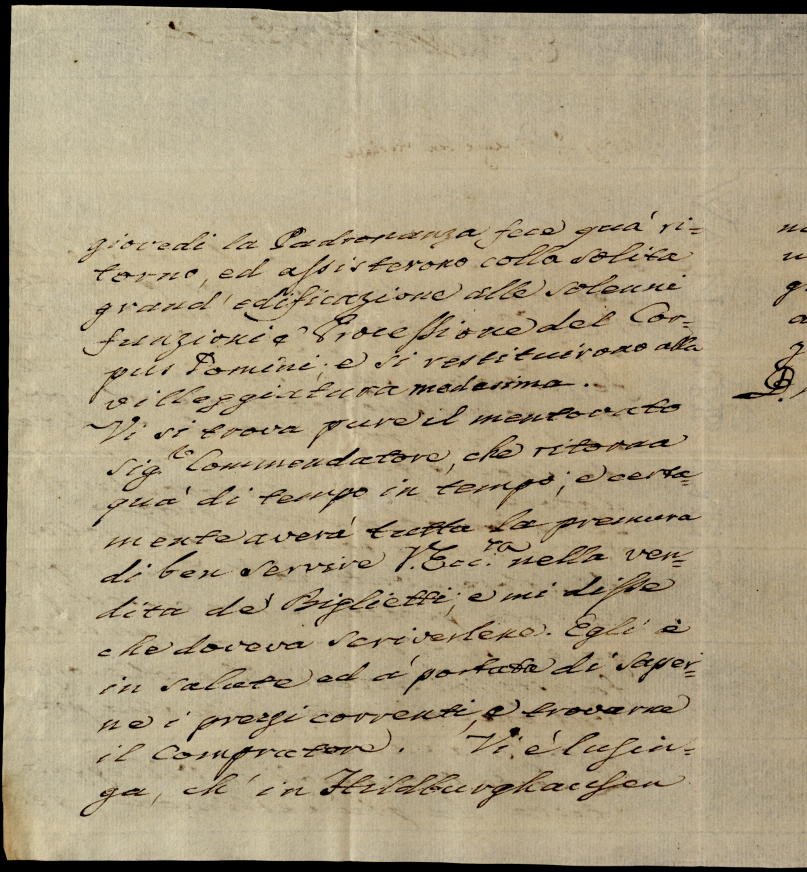 giovedi la Padronanza fece quà ri=
torno, ed assisterono colla solita
grand' edificazione alle solenni
funzioni e Processione del Cor=
pus Domini; e si restituirono alla
villeggiatura medesima.
Vi si trova pure il mentovato
Sig.re Commendatore, che ritorna
quà di tempo in tempo; e certa=
mente averà tutta la premura
di ben servire V. Ecc.za nella ven=
dita de' Biglietti; e mi disse
che doveva scriverlene. Egli è
in salute ed à portata di saper=
ne i prezzi correnti, e trovarne
il Compratore. Vi è lusin=
ga, ch' in Hildburghausen